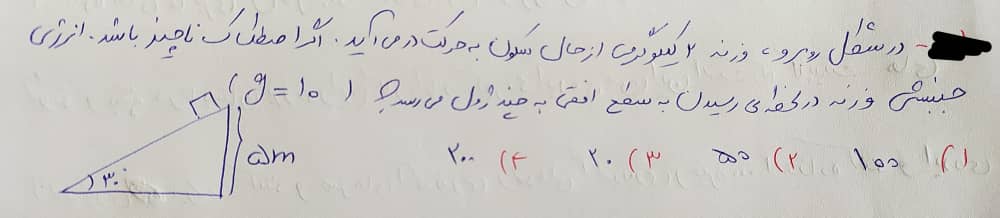 - در شکل روبرو، وزنه ۲ کیلوگرمی از حال سکون به حرکت در می آید. اگر اصطکاک ناچیز باشد. انرژی
جنبشی وزنه در لحظه ای رسیدن به سطح افقی به چند ژول می رسد؟ (g = ۱۰)
۱) ۱۰۰ ۲) ۵۰ ۳) ۲۰ ۴) ۲۰۰
۵m
۳۰°